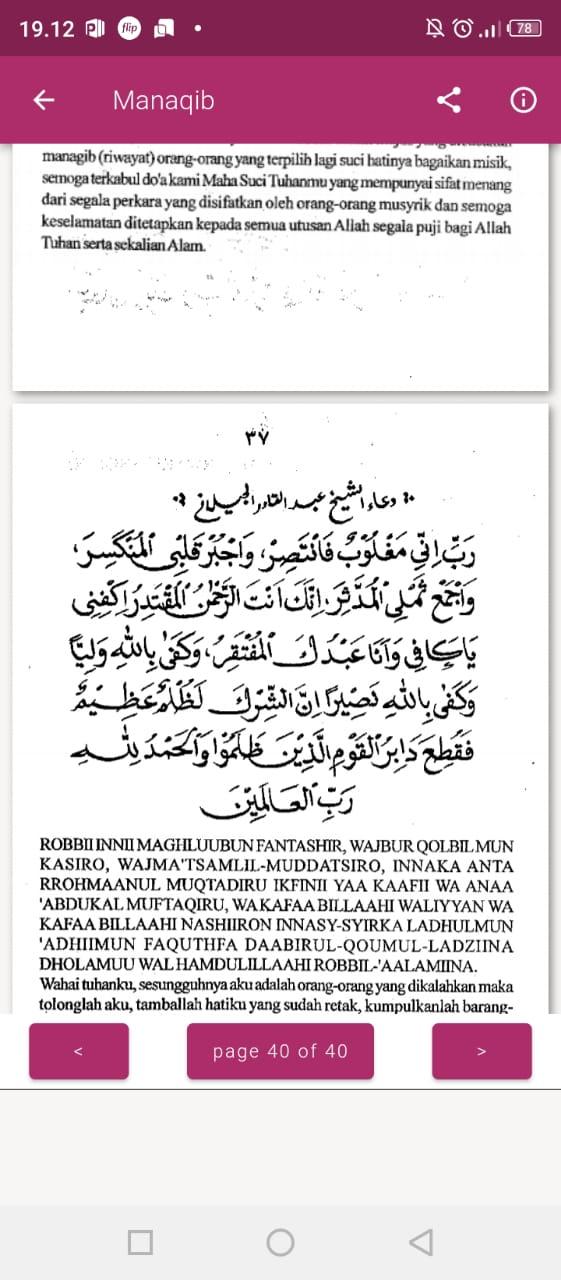 19.12
flip
78
Manaqib
managib (riwayat) orang-orang yang terpilih lagi suci hatinya bagaikan misik,
semoga terkabul do'a kami Maha Suci Tuhanmu yang mempunyai sifat menang
dari segala perkara yang disifatkan oleh orang-orang musyrik dan semoga
keselamatan ditetapkan kepada semua utusan Allah segala puji bagi Allah
Tuhan serta sekalian Alam.
٣٧
دعاء الشيخ عبد القادر الجيلاني
رَبِّ اِنِّي مَغْلُوْبٌ فَانْتَصِرْ، وَاجْبُرْ قَلْبِى الْمُنْكَسِرَ،
وَاجْمَعْ ثَمْلِى الْمُدَّثِرَ، اِنَّكَ اَنْتَ الرَّحْمٰنُ الْمُقْتَدِرُ اِكْفِنِى
يَا كَافِى وَاَنَا عَبْدُكَ الْمُفْتَقِرُ، وَكَفٰى بِاللهِ وَلِيًّا
وَكَفٰى بِاللهِ نَصِيْرًا اِنَّ الشِّرْكَ لَظُلْمٌ عَظِيْمٌ
فَقُطِعَ دَابِرُ الْقَوْمِ الَّذِيْنَ ظَلَمُوْا وَالْحَمْدُ لِلّٰهِ
رَبِّ الْعَالَمِيْنَ
ROBBII INNII MAGHLUUBUN FANTASHIR, WAJBUR QOLBIL MUN
KASIRO, WAJMA'TSAMLIL-MUDDATSIRO, INNAKA ANTA
RROHMAANUL MUQTADIRU IKFINII YAA KAAFII WA ANAA
'ABDUKAL MUFTAQIRU, WAKAFAA BILLAAHI WALIYYAN WA
KAFAA BILLAAHI NASHIIRON INNASY-SYIRKA LADHULMUN
'ADHIIMUN FAQUTHFA DAABIRUL-QOUMUL-LADZIINA
DHOLAMUU WAL HAMDULILLAAHI ROBBIL-'AALAMIINA.
Wahai tuhanku, sesungguhnya aku adalah orang-orang yang dikalahkan maka
tolonglah aku, tamballah hatiku yang sudah retak, kumpulkanlah barang-
< page 40 of 40 >